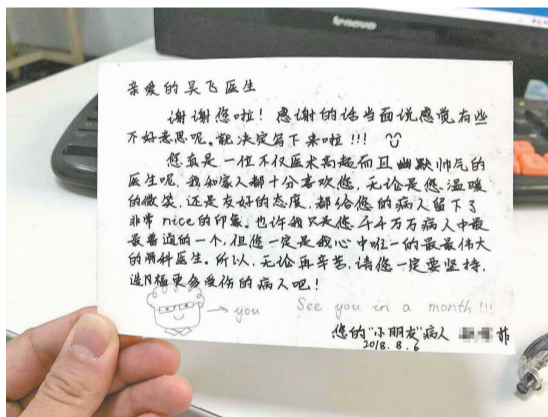 lenovo
亲爱的吴飞医生
谢谢您啦！感谢的话当面说感觉有些
不好意思呢。就决定写下来啦!!!
您真是一位不仅医术高超而且幽默帅气的
医生呢，我和家人都十分喜欢您，无论是您温暖
的微笑，还是友好的态度，都给您的病人留下了
非常nice的印象。也许我只是您千千万万病人中最
最普通的一个，但您一定是我心中唯一的最最伟大
的骨科医生。所以，无论再辛苦，请您一定要坚持，
造福更多受伤的病人吧！
→ you See you in a month!!!
您的"小朋友"病人 菲
2018.8.6